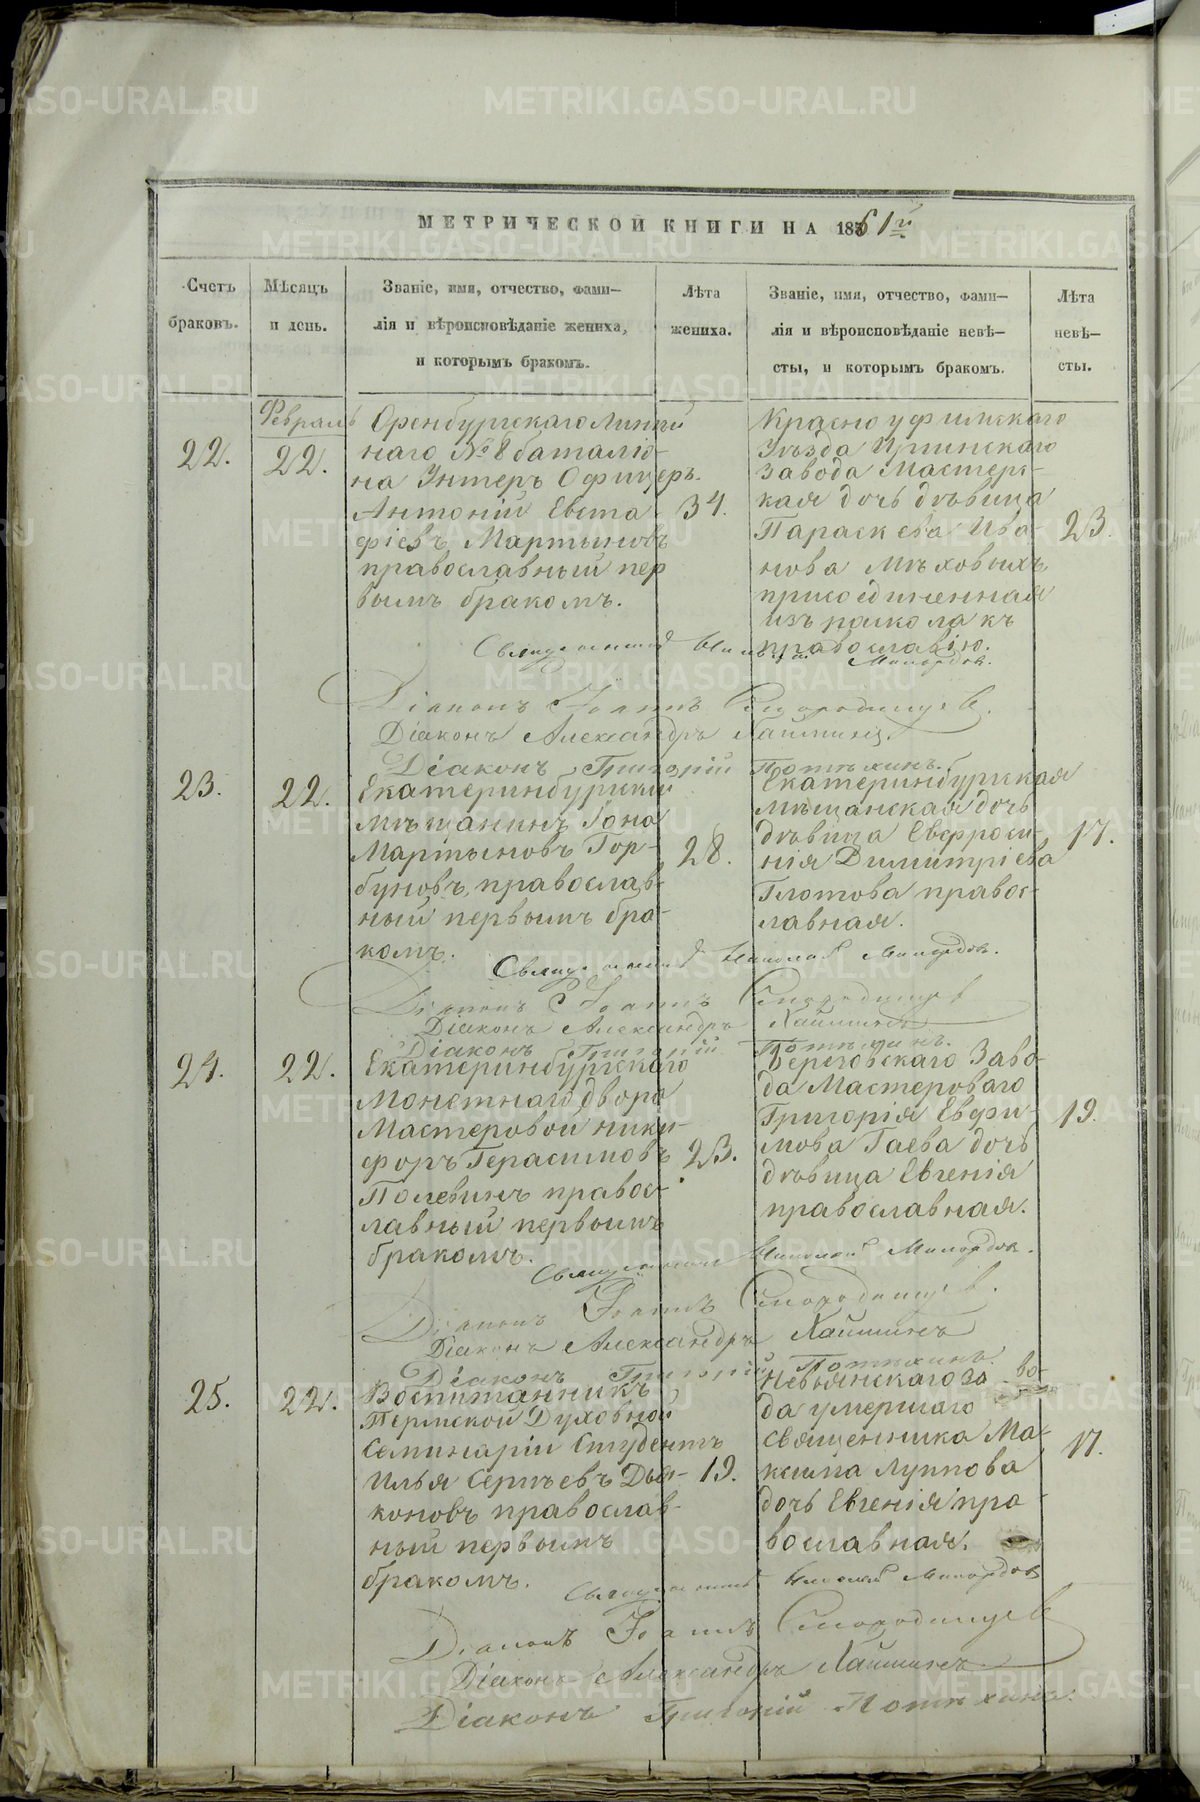 МЕТРИЧЕСКОЙ КНИГИ НА 1861й
Счетъ браковъ.
Мѣсяцъ и день.
Званіе, имя, отчество, фами-
лія и вѣроисповѣданіе жениха,
и которымъ бракомъ.
Лѣта жениха.
Званіе, имя, отчество, фами-
лія и вѣроисповѣданіе невѣ-
сты, и которымъ бракомъ.
Лѣта невѣ-
сты.
Февраль
22.
22.
Оренбургскаго Линей
наго № 8 баталіо-
на Унтеръ Офицеръ
Антоній Евста-
фіевъ Мартыновъ
православный пер
вымъ бракомъ.
34.
Красноуфимскаго
Уѣзда Иргинскаго
завода Мастерс-
кая дочь дѣвица
Параскева Ива-
нова Мѣховыхъ
присоединенная
изъ раскола къ
православію.
23.
Священникъ Николай Милордов.
Діаконъ Іоаннъ Смородинцевъ.
Діаконъ Александръ Хаймин.
Діаконъ Григорій Потѣхинъ.
23.
22.
Екатеринбургскій
мѣщанинъ Іона
Мартыновъ Гор-
буновъ, православ-
ный первымъ бра-
комъ.
28.
Екатеринбургская
мѣщанская дочь
дѣвица Евфроси-
нія Димитріева
Глотова правос-
лавная.
17.
Священникъ Николай Милордов.
Діаконъ Іоаннъ Смородинцев
Діаконъ Александръ Хайминъ
Діаконъ Григорій Потѣхинъ.
24.
22.
Екатеринбургскаго
Монетнаго двора
Мастеровой Ники-
форъ Герасимовъ
Полевинъ правос-
лавный первымъ
бракомъ.
23.
Березовскаго Заво-
да Мастероваго
Григорія Евфи-
мова Гаева дочь
дѣвица Евгенія
православная.
19.
Священникъ Николай Милордов.
Діаконъ Іоаннъ Смородинцев.
Діаконъ Александръ Хайминъ
Діаконъ Григорій Потѣхинъ.
25.
22.
Воспитанникъ
Пермской Духовной
Семинаріи Студентъ
Илья Сергѣевъ Дья-
коновъ православ-
ный первымъ
бракомъ.
19.
Невьянскаго заво-
да умершаго
священника Ма-
ксима Луппова
дочь Евгенія пра-
вославная.
17.
Священникъ Николай Милордов
Діаконъ Іоаннъ Смородинцев
Діаконъ Александръ Хайминъ
Діаконъ Григорій Потѣхинъ.
METRIKI.GASO-URAL.RU